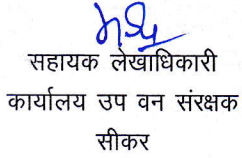 सहायक लेखाधिकारी
कार्यालय उप वन संरक्षक
सीकर